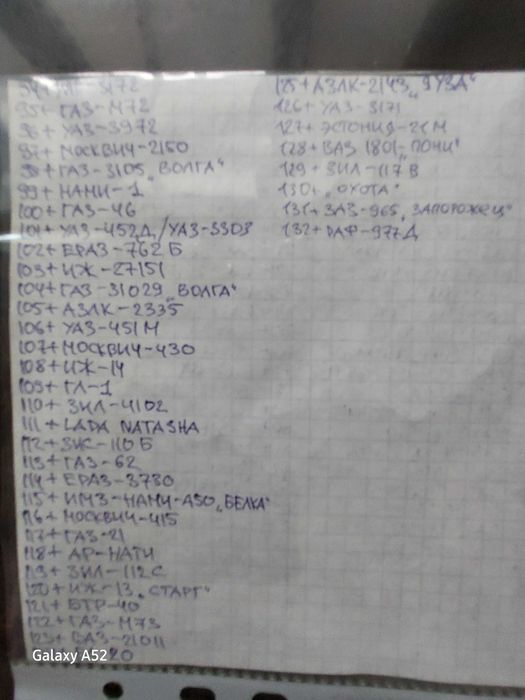 3172
95+ ГАЗ-М72
96+ УАЗ-3972
97+ МОСКВИЧ-2150
98+ ГАЗ-3105 „ВОЛГА"
99+ НАМИ-1
100+ ГАЗ-46
101+ УАЗ-452Д/УАЗ-3303
102+ ЕРАЗ-762Б
103+ ИЖ-27151
104+ ГАЗ-31029 „ВОЛГА"
105+ АЗЛК-2335
106+ УАЗ-451М
107+ МОСКВИЧ-430
108+ ИЖ-14
109+ ГЛ-1
110+ ЗИЛ-4102
111+ LADA NATASHA
112+ ЗИС-110Б
113+ ГАЗ-62
114+ ЕРАЗ-3730
115+ ИМЗ-НАМИ-А50 „БЕЛКА"
116+ МОСКВИЧ-415
117+ ГАЗ-21
118+ АР-НАТИ
119+ ЗИЛ-112С
120+ ИЖ-13 „СТАРТ"
121+ БТР-40
122+ ГАЗ-М73
123+ ВАЗ-21011
20
125+ АЗЛК-2143 „ЯУЗА"
126+ УАЗ-3171
127+ ЭСТОНИЯ-21М
128+ ВАЗ 1801 „ПОНИ"
129+ ЗИЛ-117В
130+ „ОХОТА"
131+ ЗАЗ-965 „ЗАПОРОЖЕЦ"
132+ РАФ-977Д
Galaxy A52